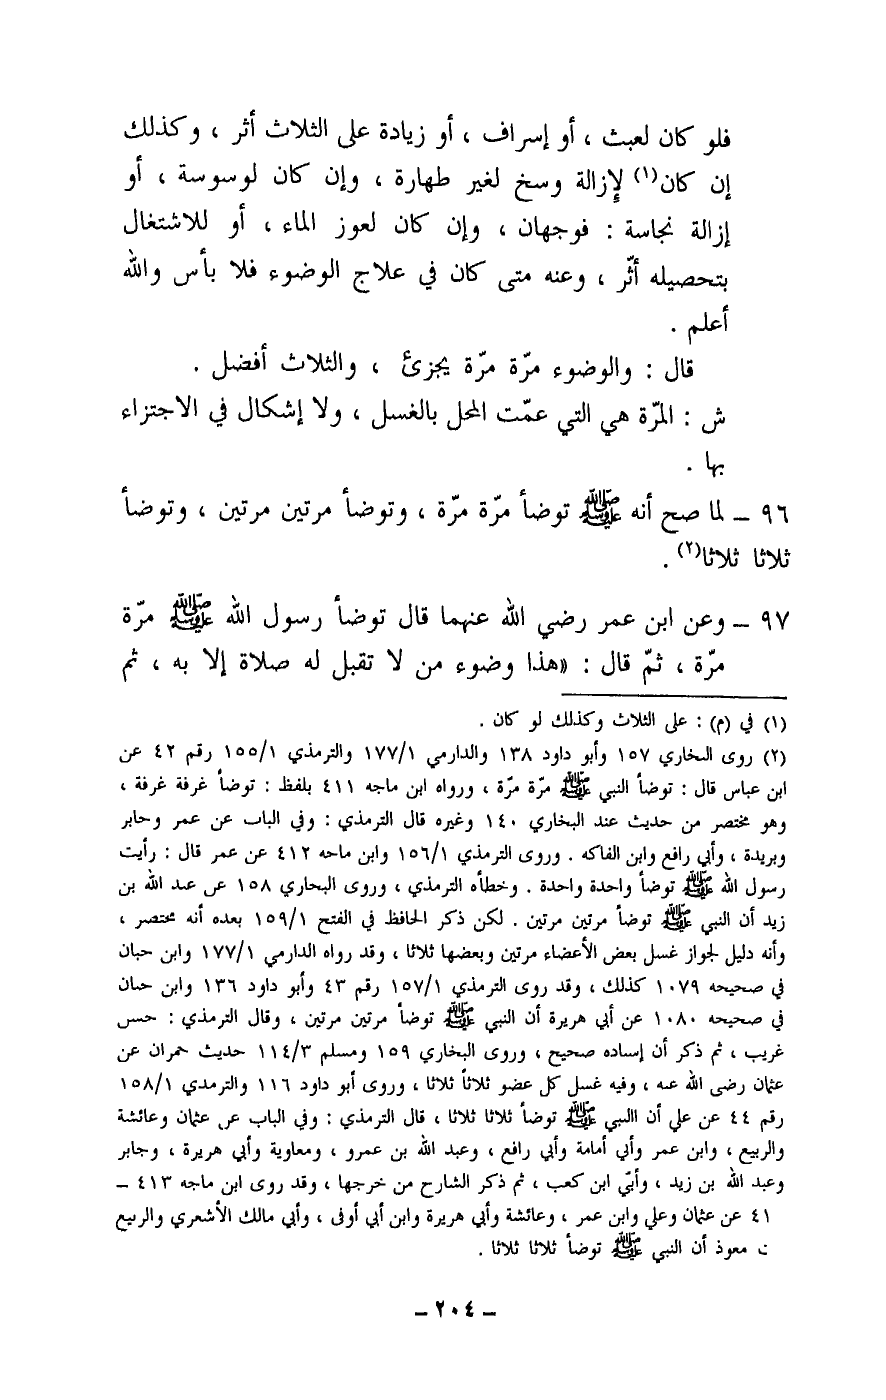 فلو كان لعبث ، أو إسراف ، أو زيادة على الثلاث أثر ، وكذلك
إن كان(١) لإزالة وسخ لغير طهارة ، وإن كان لوسوسة ، أو
إزالة نجاسة : فوجهان ، وإن كان لعوز الماء ، أو للاشتغال
بتحصيله أثّر ، وعنه متى كان في علاج الوضوء فلا بأس والله
أعلم .
قال : والوضوء مرّة مرّة يجزئ ، والثلاث أفضل .
ش : المرّة هي التي عمّت المحل بالغسل ، ولا إشكال في الاجتزاء
بها .
٩٦ ــ لما صح أنه ﷺ توضأ مرّة مرّة ، وتوضأ مرتين مرتين ، وتوضأ
ثلاثا ثلاثا(٢) .
٩٧ ــ وعن ابن عمر رضي الله عنهما قال توضأ رسول الله ﷺ مرّة
مرّة ، ثمّ قال : «هذا وضوء من لا تقبل له صلاة إلا به ، ثم
(١) في (م) : على الثلاث وكذلك لو كان .
(٢) روى البخاري ١٥٧ وأبو داود ١٣٨ والدارمي ١٧٧/١ والترمذي ١٥٥/١ رقم ٤٢ عن
ابن عباس قال : توضأ النبي ﷺ مرّة مرّة ، ورواه ابن ماجه ٤١١ بلفظ : توضأ غرفة غرفة ،
وهو مختصر من حديث عند البخاري ١٤٠ وغيره قال الترمذي : وفي الباب عن عمر وجابر
وبريدة ، وأبي رافع وابن الفاكه . وروى الترمذي ١٥٦/١ وابن ماجه ٤١٢ عن عمر قال : رأيت
رسول الله ﷺ توضأ واحدة واحدة . وخطأه الترمذي ، وروى البخاري ١٥٨ عن عبد الله بن
زيد أن النبي ﷺ توضأ مرتين مرتين . لكن ذكر الحافظ في الفتح ١٥٩/١ بعده أنه مختصر ،
وأنه دليل لجواز غسل بعض الأعضاء مرتين وبعضها ثلاثا ، وقد رواه الدارمي ١٧٧/١ وابن حبان
في صحيحه ١٠٧٩ كذلك ، وقد روى الترمذي ١٥٧/١ رقم ٤٣ وأبو داود ١٣٦ وابن حبان
في صحيحه ١٠٨٠ عن أبي هريرة أن النبي ﷺ توضأ مرتين مرتين ، وقال الترمذي : حسن
غريب ، ثم ذكر أن إسناده صحيح ، وروى البخاري ١٥٩ ومسلم ١١٤/٣ حديث حمران عن
عثمان رضى الله عنه ، وفيه غسل كل عضو ثلاثاً ثلاثا ، وروى أبو داود ١١٦ والترمذي ١٥٨/١
رقم ٤٤ عن علي أن االنبي ﷺ توضأ ثلاثا ثلاثا ، قال الترمذي : وفي الباب عن عثمان وعائشة
والربيع ، وابن عمر وأبي أمامة وأبي رافع ، وعبد الله بن عمرو ، ومعاوية وأبي هريرة ، وجابر
وعبد الله بن زيد ، وأبيّ ابن كعب ، ثم ذكر الشارح من خرجها ، وقد روى ابن ماجه ٤١٣ ــ
٤١ عن عثمان وعلي وابن عمر ، وعائشة وأبي هريرة وابن أبي أوفى ، وأبي مالك الأشعري والربيع
ت معوذ أن النبي ﷺ توضأ ثلاثا ثلاثا .
ــ ٢٠٤ ــ